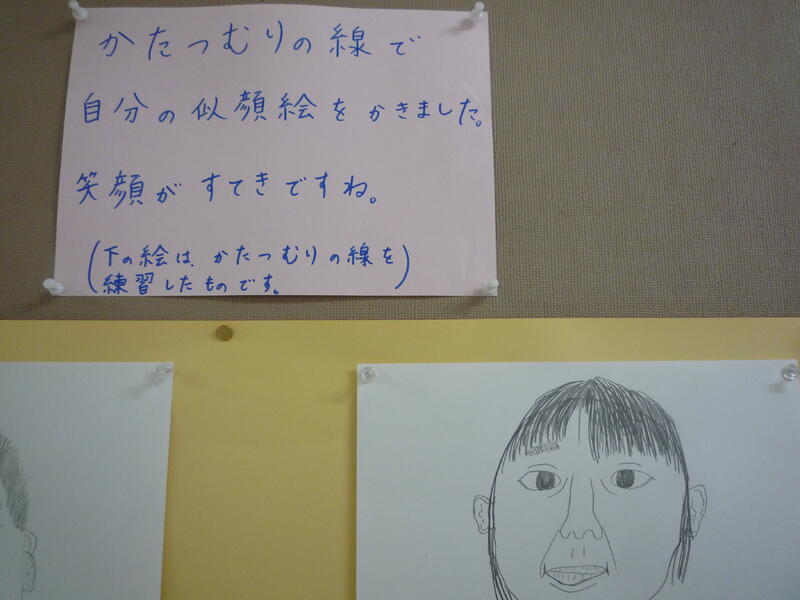 かたつむりの線で
自分の似顔絵をかきました。
笑顔がすてきですね。
(下の絵は、かたつむりの線を
練習したものです。)